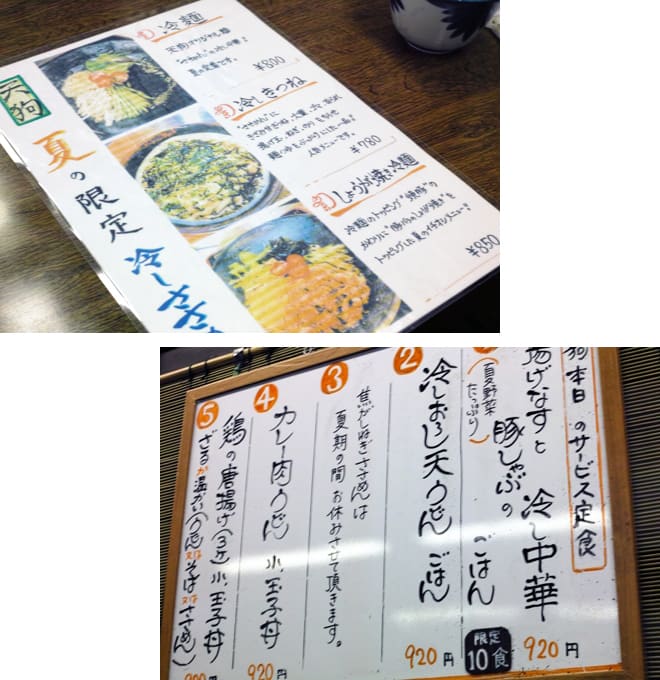 天狗
夏の限定 冷しささ
冷麺
夏の定番です。
¥800
冷しきつね
"ささめん"に
人気メニューです。
¥780
しょうが焼き冷麺
冷麺のトッピング"焼豚"の
かわりに"豚肉のしょうが焼き"を
トッピングした夏のイチオシメニュー！
¥850
狗本日のサービス定食
揚げなすと豚しゃぶの冷し中華
(夏野菜たっぷり)
ごはん
限定10食
920円
2 冷しおろし天うどん ごはん
920円
3 焦がしねぎささめんは
夏期の間お休みさせて頂きます。
4 カレー肉うどん 小、玉子丼
920円
5 鶏の唐揚げ(3ヶ) 小、玉子丼
ざるか温かい(うどん又はそば又はささめん)